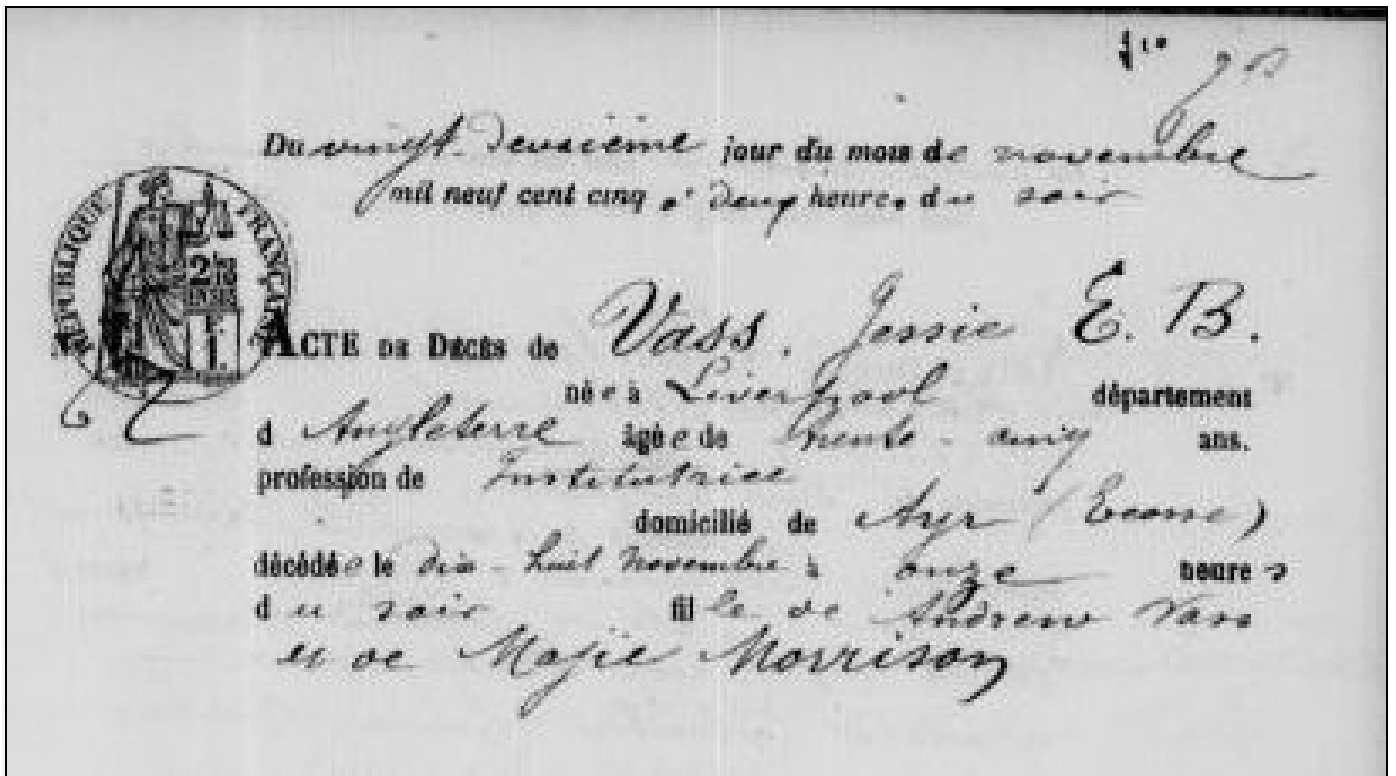 fo
Du vingt-deuxième jour du mois de novembre
mil neuf cent cinq à deux heures du soir
RÉPUBLIQUE FRANÇAISE
ACTE DE DÉCÈS de Vass, Jessie E. B.
née à Liverpool département
d Angleterre âgée de trente-cinq ans.
profession de Institutrice
domicilié de Ayr (Ecosse)
décédée le dix-huit novembre à onze heures
du soir fille de Andrew Vass
et de Majie Morrison